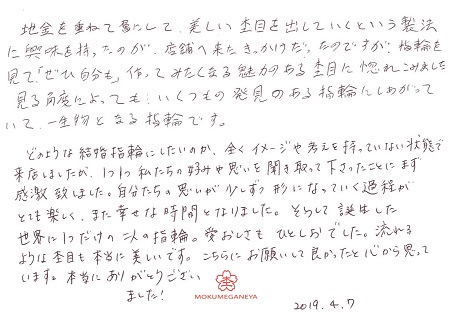 地金を重ねて層にして、美しい杢目を出していくという製法
に興味を持ったのが、店舗へ来たきっかけだったのですが、指輪を
見て「ぜひ自分も」作ってみたくなる魅力のある杢目に惚れこみました
見る角度によっても、いくつもの発見のある指輪にしあがって
いて、一生物となる指輪です。
どのような結婚指輪にしたいのか、全くイメージや考えを持っていない状態で
来店しましたが、1つ1つ私たちの好みや思いを聞き取って下さったことにまず
感激致しました。自分たちの思いが少しずつ形になっていく過程が
とても楽しく、また幸せな時間となりました。そうして誕生した
世界に1つだけの二人の指輪。愛おしさもひとしおでした。流れる
ような杢目も本当に美しいです。こちらにお願いして良かったと心から思って
います。本当にありがとうござい
ました!
MOKUMEGANEYA
2019.4.7